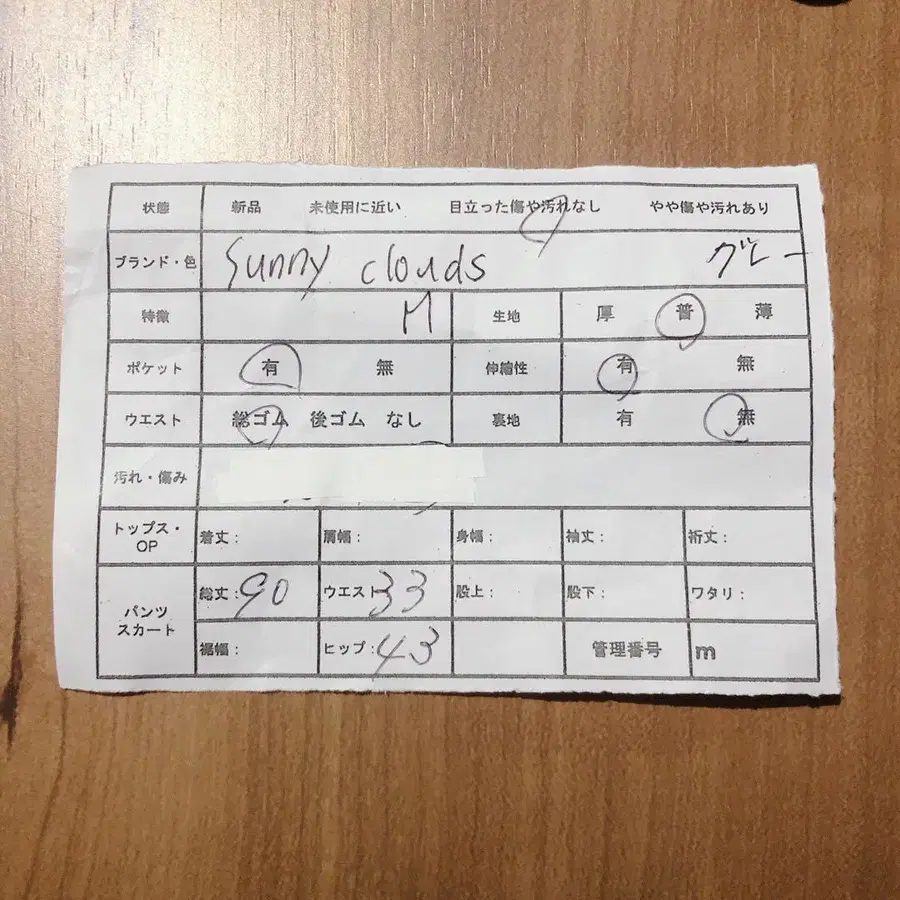 状態 新品 未使用に近い 目立った傷や汚れなし やや傷や汚れあり
ブランド・色 Sunny clouds グレー
特徴 M 生地 厚 普 薄
ポケット 有 無 伸縮性 有 無
ウエスト 総ゴム 後ゴム なし 裏地 有 無
汚れ・傷み
トップス・OP 着丈: 肩幅: 身幅: 袖丈: 裄丈:
パンツ スカート 総丈: 90 ウエスト 33 股上: 股下: ワタリ:
裾幅: ヒップ: 43 管理番号 m